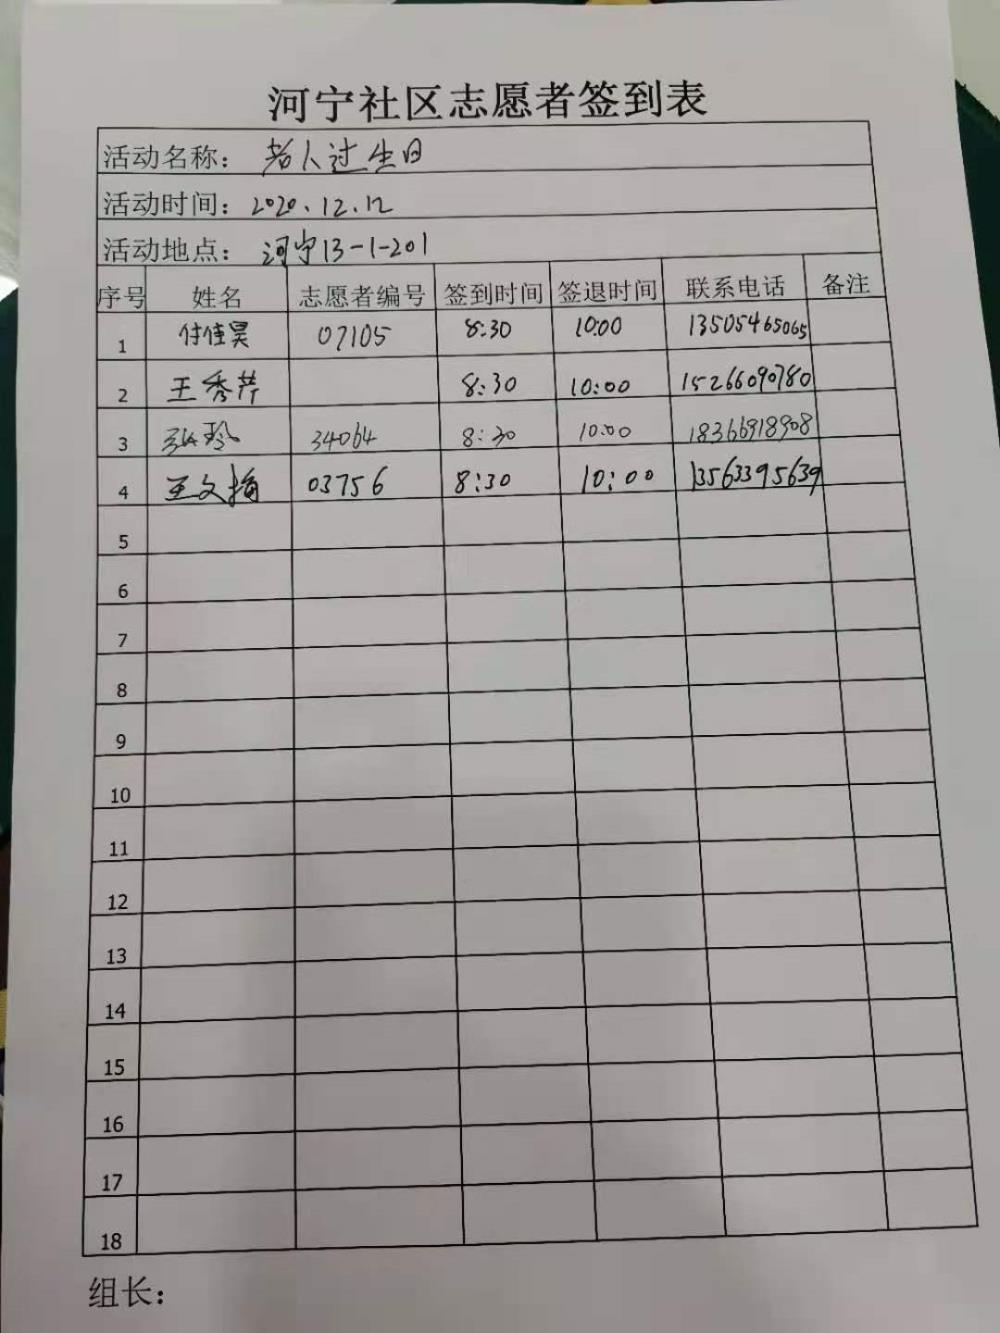 河宁社区志愿者签到表
活动名称: 老人过生日
活动时间: 2020.12.12
活动地点: 河宁13-1-201
序号 姓名 志愿者编号 签到时间 签退时间 联系电话 备注
1 付佳昊 07105 8:30 10:00 13505465065
2 王秀芹 8:30 10:00 15266090780
3 张玲 34064 8:30 10:00 18366918908
4 王文梅 03756 8:30 10:00 13563395639
5
6
7
8
9
10
11
12
13
14
15
16
17
18
组长: